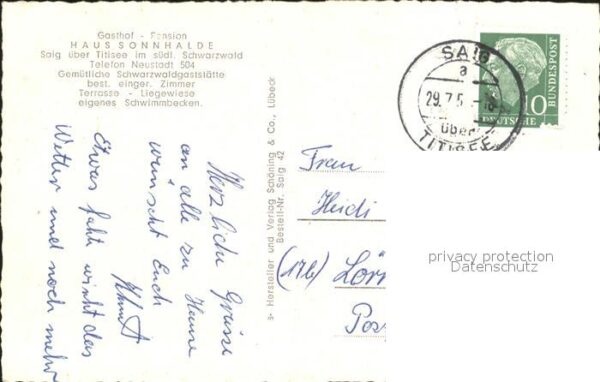 Gasthof - Pension
HAUS SONNHALDE
Saig über Titisee im südl. Schwarzwald
Telefon Neustadt 504
Gemütliche Schwarzwaldgaststätte
best. einger. Zimmer
Terrasse - Liegewiese
eigenes Schwimmbecken.
Herzliche Grüsse
an alle zu Hause
wünscht Euch
Etwas fehlt wirkt das
Wetter und noch mehr
s- Hersteller und Verlag Schöning & Co., Lübeck
Bestell-Nr. Saig 42
SAIG
a
29.7.5 -18
über
TITISEE
10
DEUTSCHE
BUNDESPOST
Frau
Heidi
(17b) Lörr
Pos
privacy protection
Datenschutz